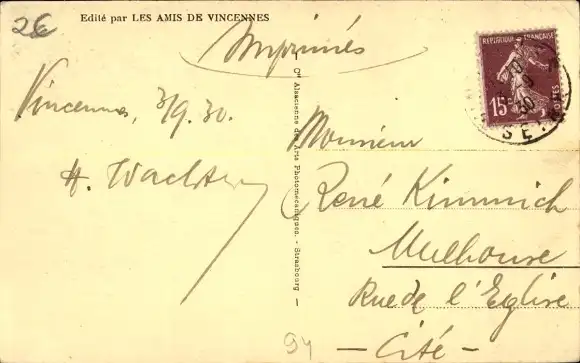 2€
Edité par LES AMIS DE VINCENNES
Imprimés
Vincennes, 3/9. 30.
H. Wachter
Cie Alsacienne des Arts Photomécaniques. - Strasbourg
REPUBLIQUE FRANÇAISE
15c
POSTES
30
SEINE
Monsieur
René Kimmich
Mulhouse
Rue de l'Eglise
- Cité -
94